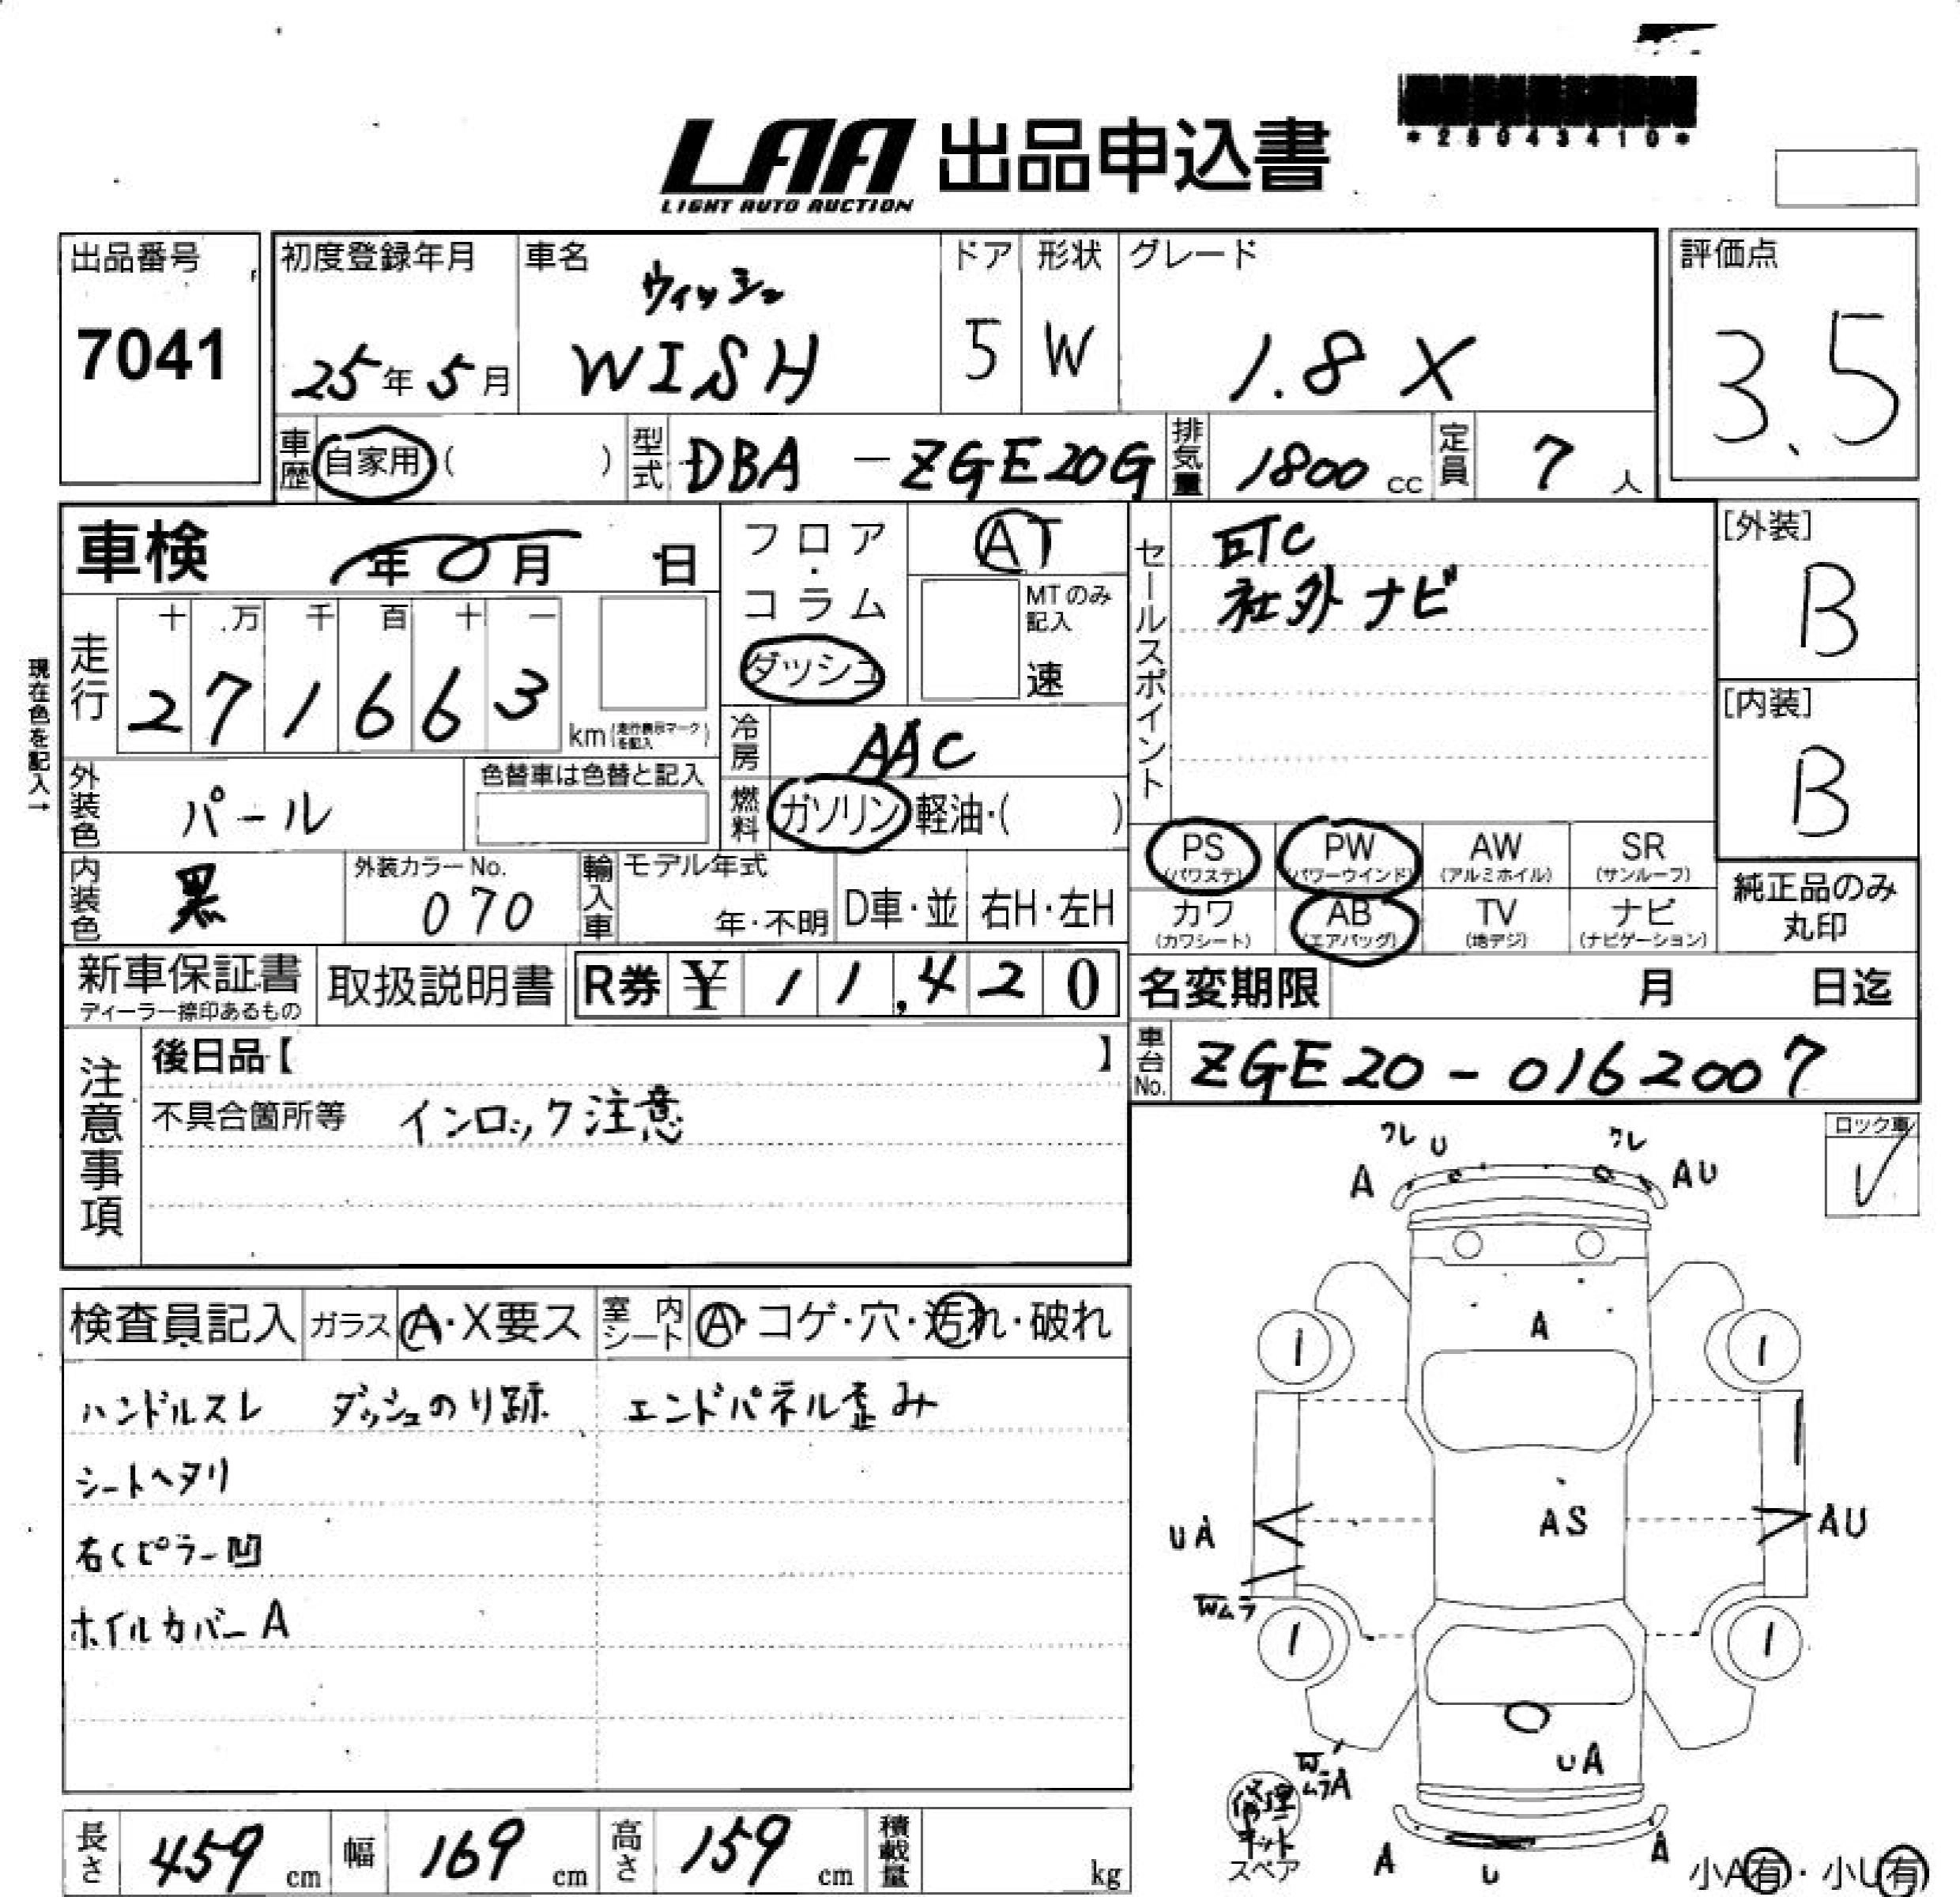 *28043410*
LAA 出品申込書
LIGHT AUTO AUCTION
出品番号
7041
初度登録年月
25年5月
車名
ウィッシュ
WISH
ドア
5
形状
W
グレード
1.8 X
評価点
3.5
車歴 自家用 ( )
型式 DBA - ZGE20G
排気量 1800 cc
定員 7 人
車検 年 月 日
フロア・コラム
ダッシュ
AT
MTのみ記入
速
セールスポイント
ETC
社外ナビ
[外装]
B
[内装]
B
現在色を記入→
走行
十 万 千 百 十 一
2 7 1 6 6 3
km (走行表示マークを記入)
冷房 AAC
燃料 ガソリン 軽油・( )
外装色 パール
色替車は色替と記入
内装色 黒
外装カラーNo.
070
輸入車
モデル年式
年・不明
D車・並
右H・左H
PS (パワステ)
PW (パワーウインド)
AW (アルミホイル)
SR (サンルーフ)
カワ (カワシート)
AB (エアバッグ)
TV (地デジ)
ナビ (ナビゲーション)
純正品のみ
丸印
新車保証書
ディーラー捺印あるもの
取扱説明書
R券 ¥ 11,420
名変期限 月 日迄
車台No. ZGE20-0162007
注意事項
後日品【 】
不具合箇所等 インロック注意
ロック車
✓
検査員記入 ガラス A・X要ス 室内シート A・コゲ・穴・汚れ・破れ
ハンドルスレ ダッシュのり跡 エンドパネル歪み
シートヘタリ
右Cピラー凹
ホイルカバーA
ワレ U ワレ
A AU
A
1 1
UA AS AU
Wムラ
1 1
UA
WムラA
修理キット
スペア
A U A
小A有・小U有
長さ 459 cm
幅 169 cm
高さ 159 cm
積載量 kg